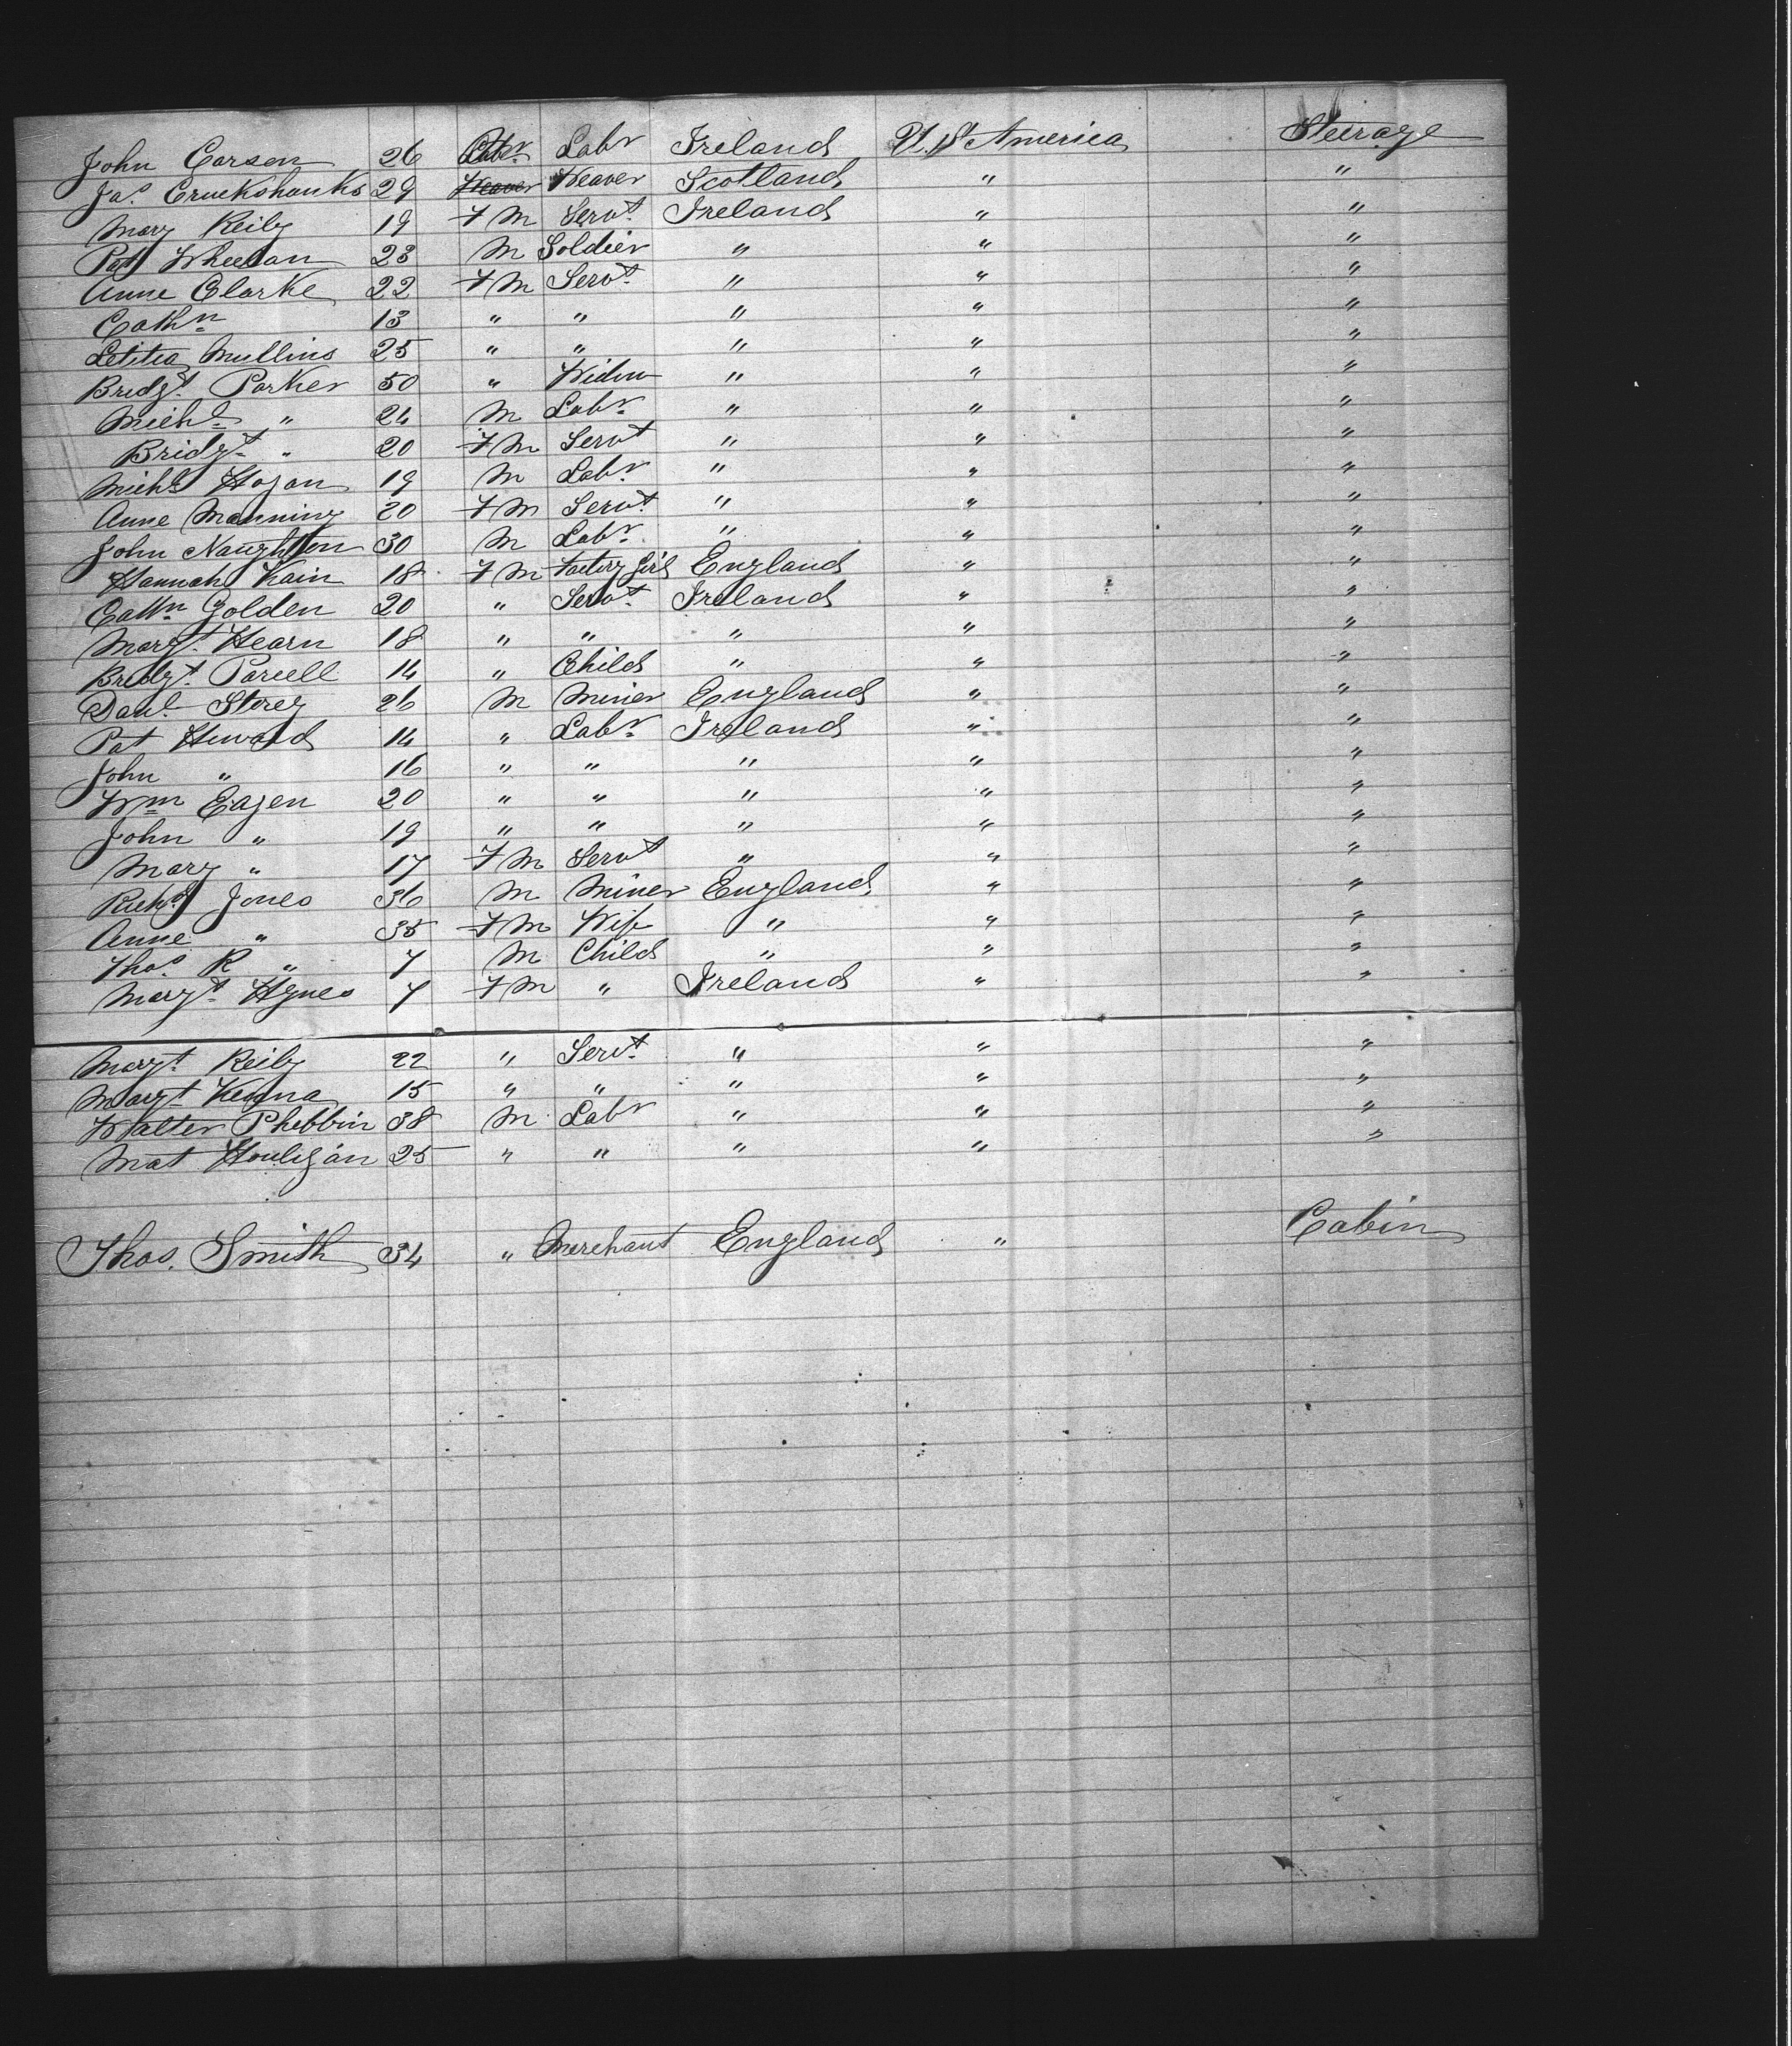 John Carson 26 Labr Labr Ireland U. St America Steerage
Jas. Cruckshanks 29 Weaver Weaver Scotland " "
Mary Reily 19 F M Servt. Ireland " "
Pat Wheelan 23 M Soldier " " "
Anne Clarke 22 F M Servt. " " "
Cathn 13 " " " " "
Letitia Mullins 25 " " " " "
Bridgt. Parker 50 " Widow " " "
Michl " 24 M Labr " " "
Bridgt " 20 F M Servt " " "
Michl Hogan 19 M Labr " " "
Anne Manning 20 F M Servt. " " "
John Naughton 30 M Labr. " " "
Hannah Kain 18 F M Factory Girl England " "
Cathn Golden 20 " Servt. Ireland " "
Margt. Hearn 18 " " " " "
Bridgt. Parcell 14 " Child " " "
Danl. Storey 26 M Miner England " "
Pat Heward 14 " Labr Ireland " "
John " 16 " " " " "
Wm Eagen 20 " " " " "
John " 19 " " " " "
Mary " 17 F M Servt " " "
Richd Jones 36 M Miner England " "
Anne " 35 F M Wife " " "
Thos. R " 7 M Child " " "
Margt. Hynes 7 F M " Ireland " "
Margt. Reily 22 " Servt. " " "
Margt Kenna 15 " " " " "
Walter Phibbin 38 M Labr " " "
Mat Houligan 25 " " " " "
Thos. Smith 34 " Merchant England " Cabin